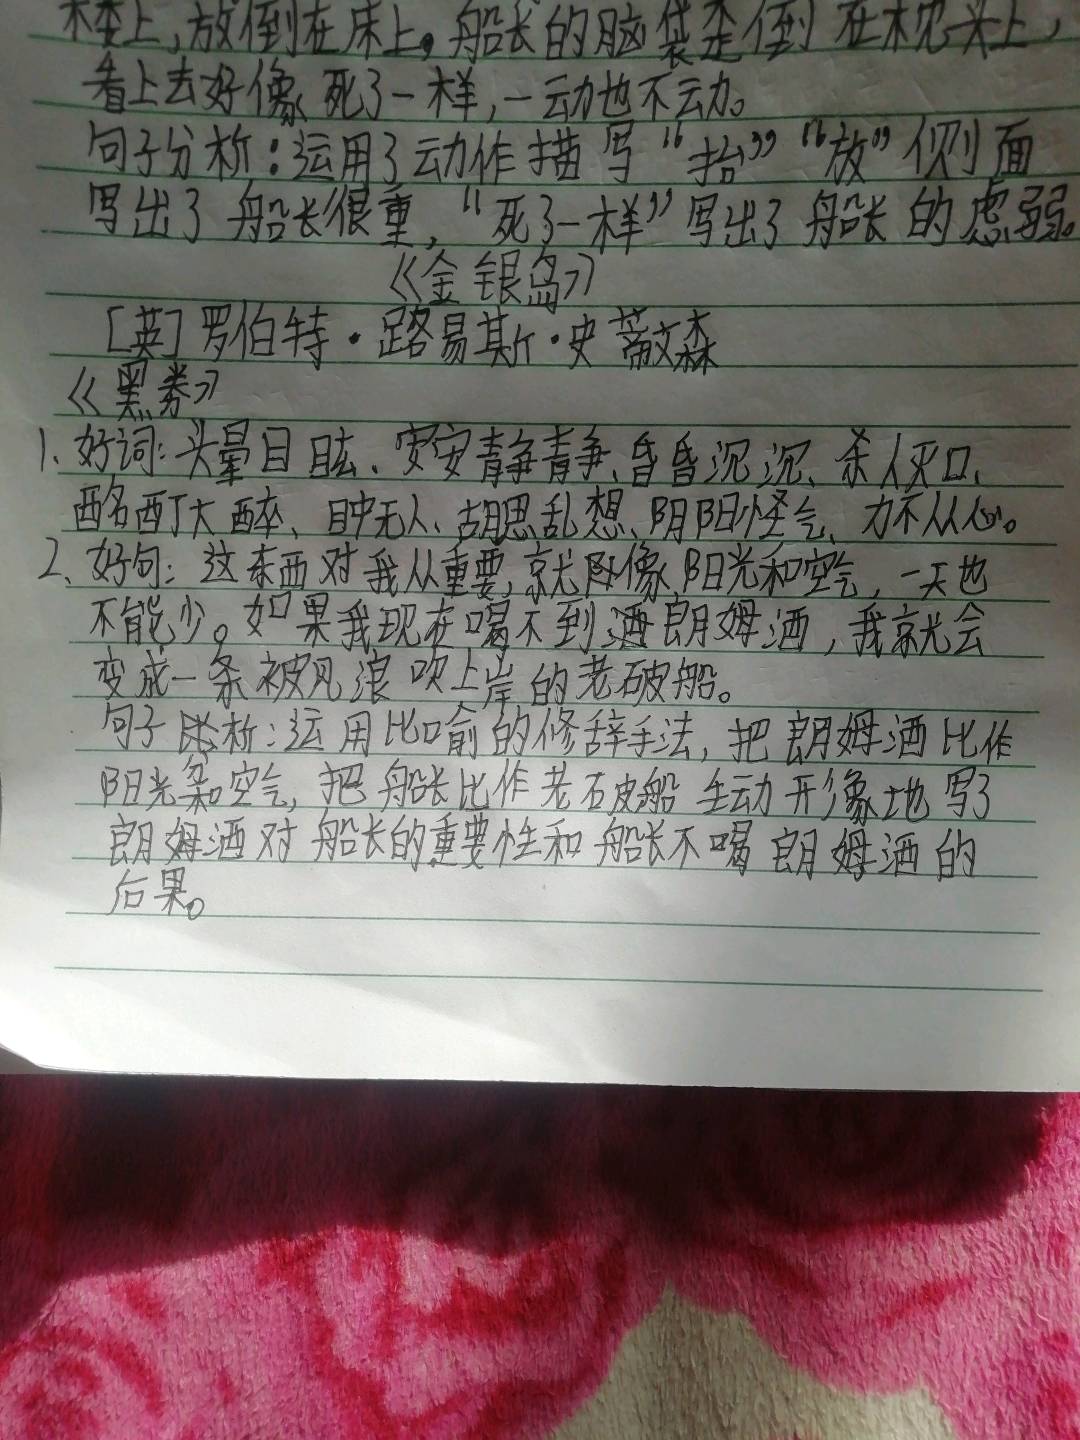 楼上,放倒在床上。船长的脑袋歪倒在枕头上,
看上去好像死了一样,一动也不动。
句子分析:运用了动作描写“抬”“放”侧面
写出了船长很重,“死了一样”写出了船长的虚弱。
《金银岛》
[英]罗伯特·路易斯·史蒂文森
《黑券》
1、好词:头晕目眩、安安静静、昏昏沉沉、杀人灭口、
酩酊大醉、目中无人、胡思乱想、阴阳怪气、力不从心。
2、好句:这东西对我从重要,就像阳光和空气,一天也
不能少。如果我现在喝不到酒朗姆酒,我就会
变成一条被风浪吹上岸的老破船。
句子分析:运用比喻的修辞手法,把朗姆酒比作
阳光和空气,把船长比作老破船生动形象地写了
朗姆酒对船长的重要性和船长不喝朗姆酒的
后果。